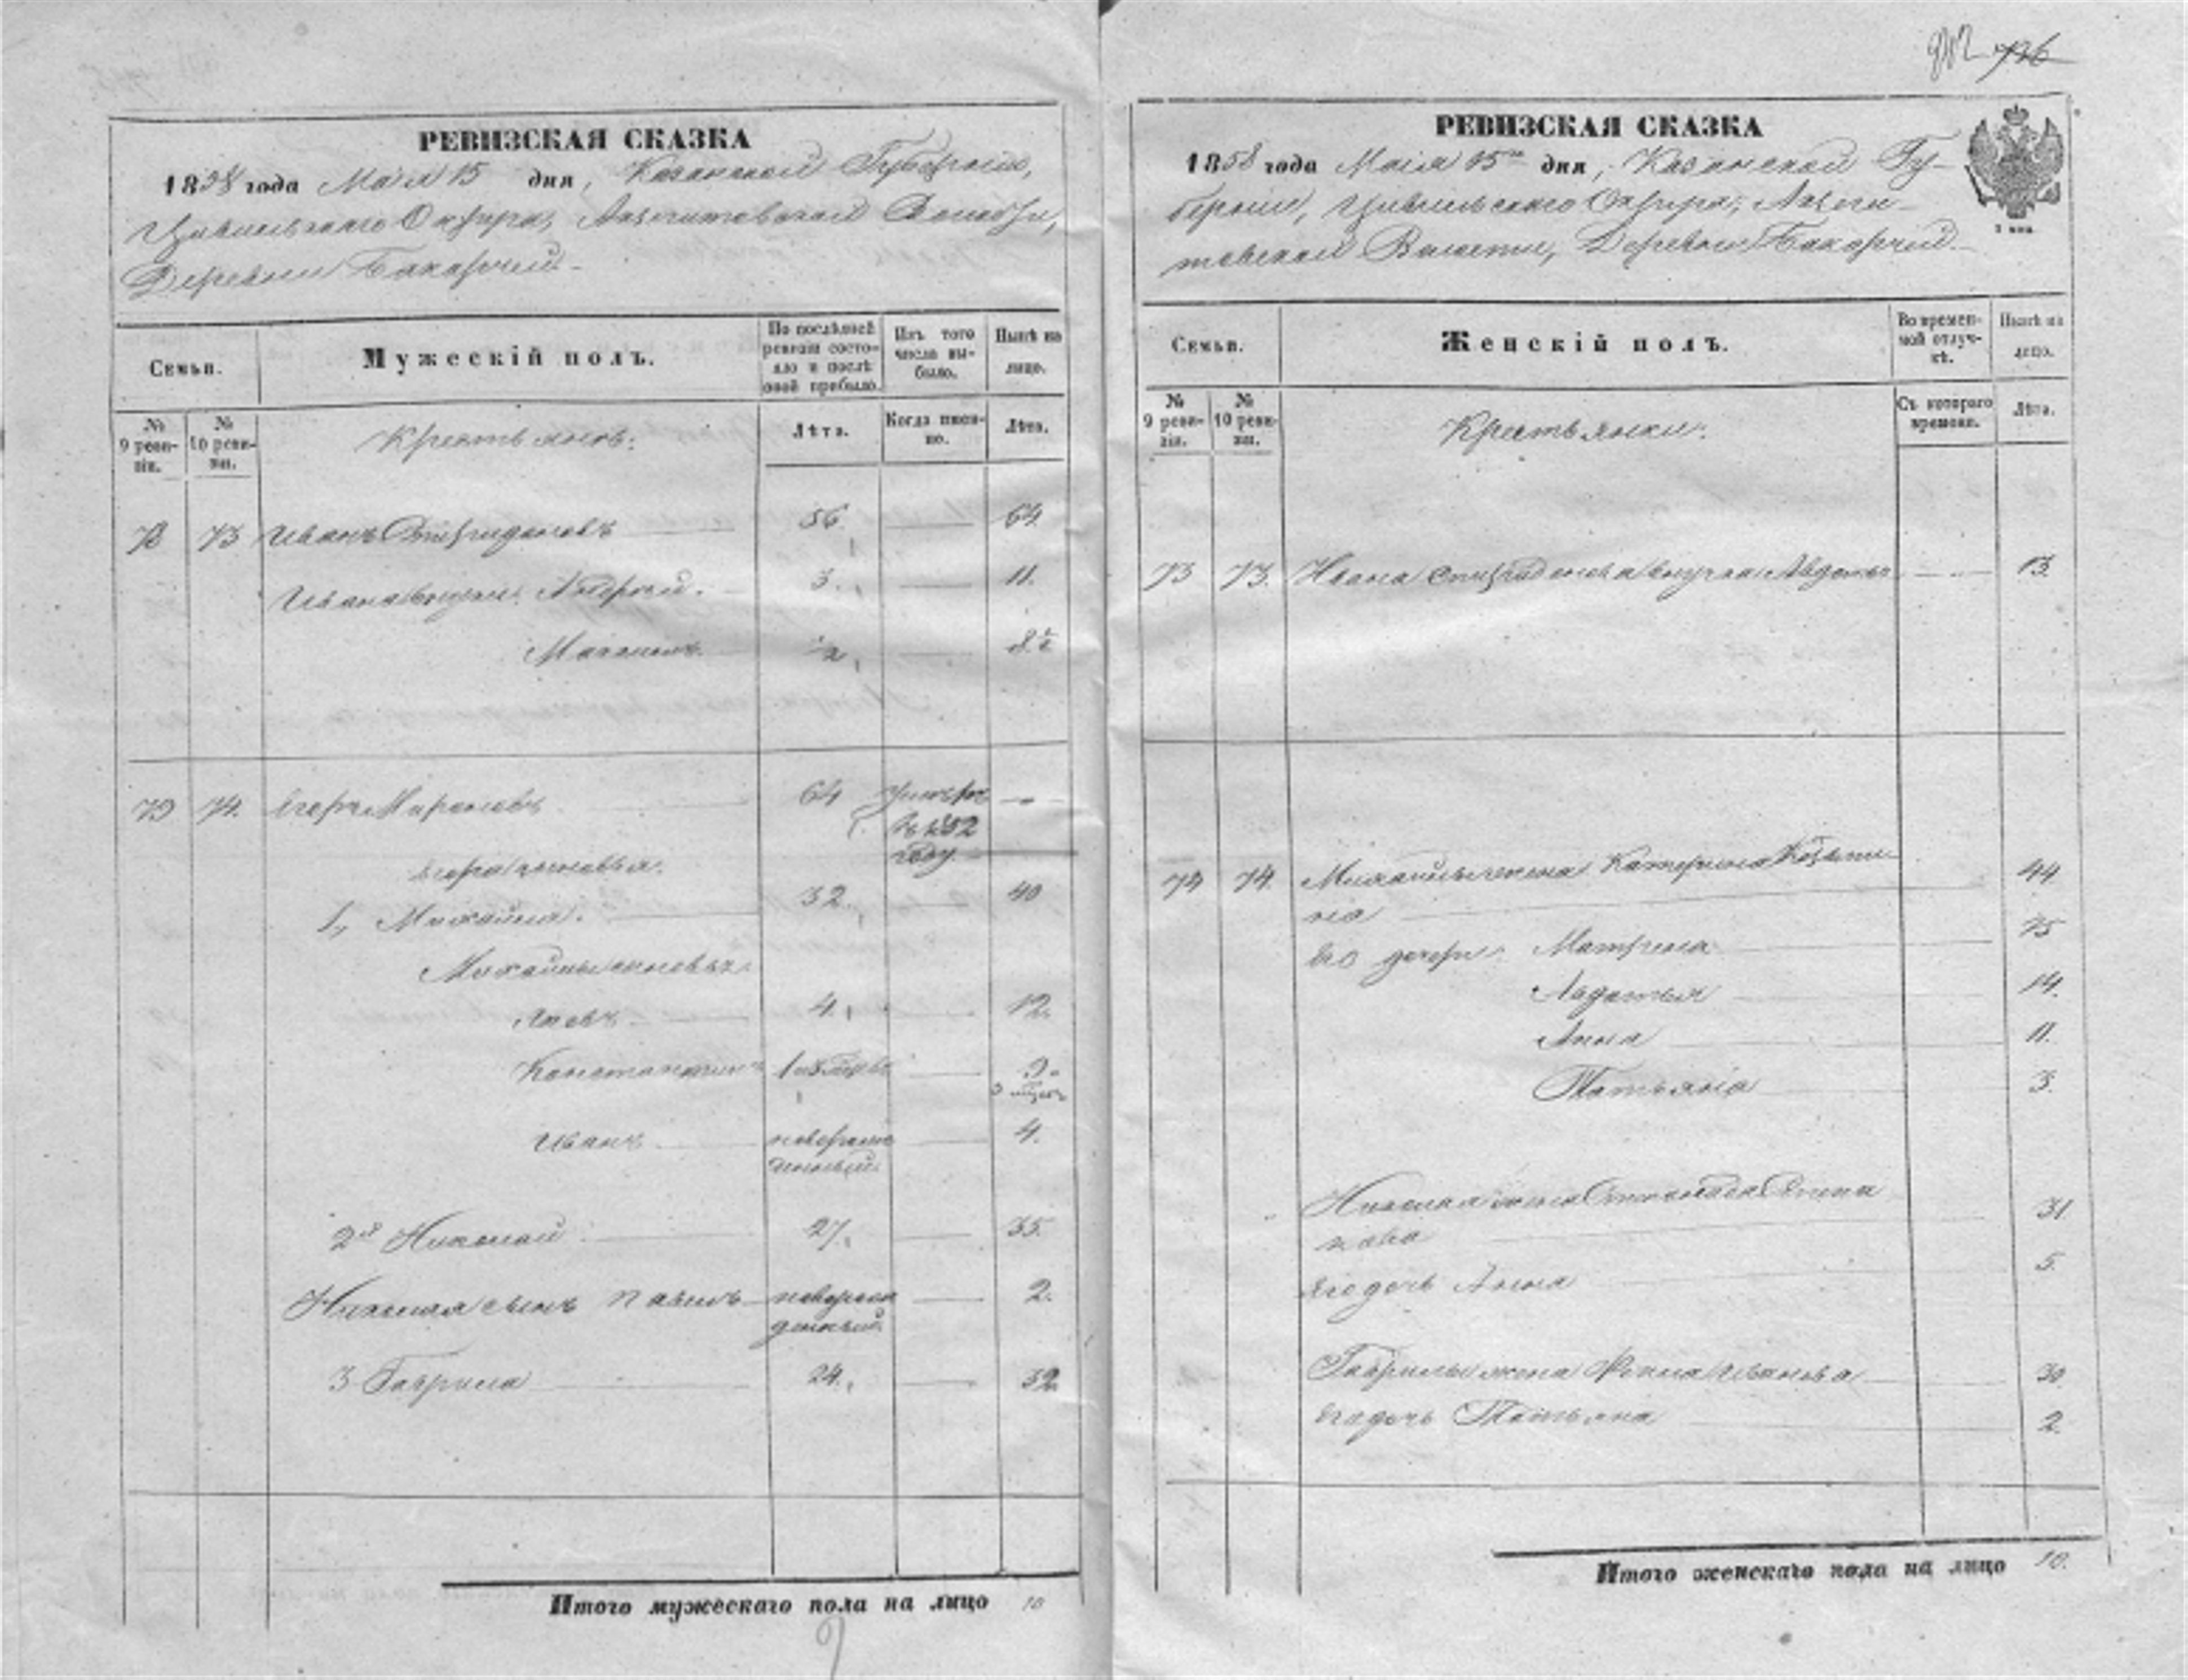 РЕВИЗСКАЯ СКАЗКА
1858 года Маія 15 дня, Казанской Губерніи,
Цивильскаго Округа, Волости,
Деревни
Семьи.
Мужескій полъ.
По послѣдней ревизіи состояло и послѣ оной прибыло.
Изъ того числа выбыло.
Нынѣ на лицо.
№ 9 ревизіи.
№ 10 ревизіи.
Крестьяновъ.
Лѣта.
Когда именно.
Лѣта.
73 Иванъ Спиридоновъ 56. 64.
Ивана внуки: Андрей. 3. 11.
½ 8½
74. Егоръ Мироновъ 64 умеръ
въ 1852
году
Егора сыновья.
1, Михайла. 32. 40
Михайлы сыновья
Яковъ 4. 12.
Константинъ 9.
Иванъ новорож 4.
денный
2й Николай 27. 35.
Николая сынъ Павелъ новорож 2.
денный
3 Гаврила 24. 32.
Итого мужескаго пола на лицо 10
726
РЕВИЗСКАЯ СКАЗКА
1858 года Маія 15го дня, Казанской Гу-
берніи, Цивильскаго Округа,
Волости, Деревни
Семьи.
Женскій полъ.
Во временной отлучкѣ.
Нынѣ на лицо.
№ 9 ревизіи.
№ 10 ревизіи.
Крестьянки.
Съ котораго времени.
Лѣта.
73 73. Ивана Спиридонова внучка Авдотья 13.
74 74. Михайлы жена Катерина Козьми 44.
на
Его дочери: Матрена 15
Авдотья 14.
Анна 11.
Татьяна 3.
Николая жена Степанида 31.
Его дочь Анна 5.
Гаврилы жена Иванова 30.
Его дочь Татьяна 2.
Итого женскаго пола на лицо 10.